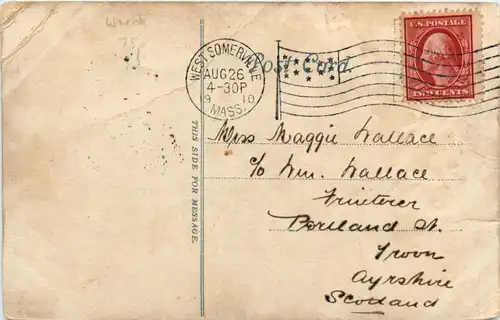 Wreck
75
WEST SOMERVILLE
AUG 26
4-30P
9 10
MASS.
Post Card.
U.S. POSTAGE
TWO CENTS
THIS SIDE FOR MESSAGE.
Miss Maggie Wallace
c/o Wm. Wallace
Portland St.
Troon
Ayrshire
Scotland